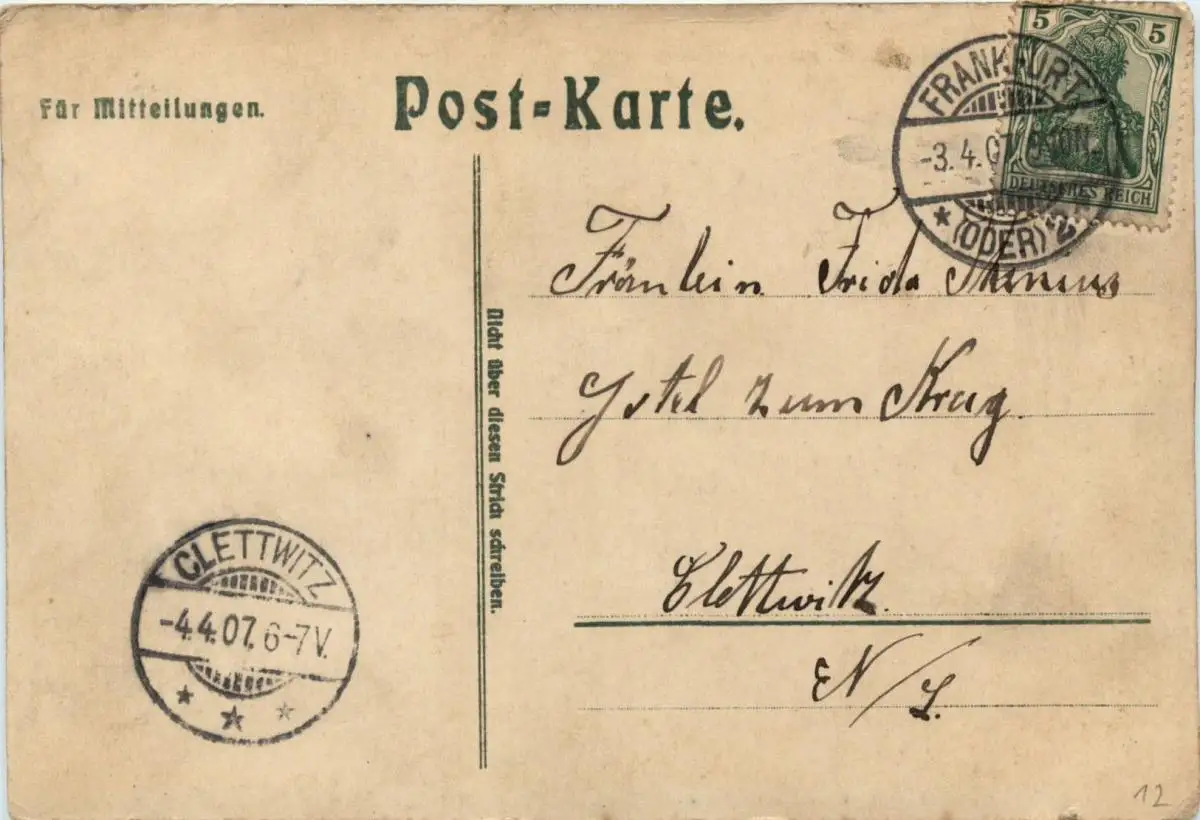 Für Mitteilungen.
Post-Karte.
5 5
DEUTSCHES REICH
FRANKFURT
-3.4.0
* (ODER) * 2
Fräulein Frida
Hotel zum Krug.
Nicht über diesen Strich schreiben.
Clettwitz.
N/L.
CLETTWITZ
-4.4.07. 6-7V.
12